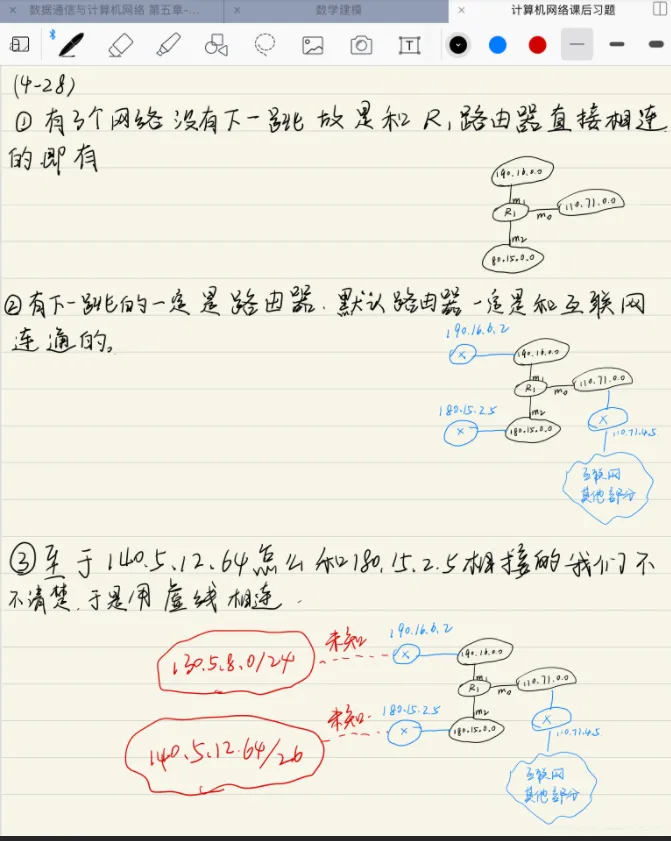 数据通信与计算机网络 第五章-...
数学建模
计算机网络课后习题
T
(4-28)
① 有3个网络没有下一跳 故是和 R1路由器直接相连
的 即有
190.16.0.0
m1
R1
m0
110.71.0.0
m2
80.15.0.0
② 有下一跳的一定是路由器. 默认路由器一定是和互联网
连通的。
190.16.6.2
X
190.16.0.0
m1
R1
m0
110.71.0.0
180.15.2.5
m2
X
180.15.0.0
X
110.71.4.5
互联网
其他部分
③ 至于140.5.12.64怎么和180.15.2.5相接的我们不
不清楚.于是用虚线相连.
190.16.6.2
未知
130.5.8.0/24
X
190.16.0.0
m1
R1
m0
110.71.0.0
未知.
180.15.2.5
m2
X
180.15.0.0
X
110.71.4.5
140.5.12.64/26
互联网
其他部分